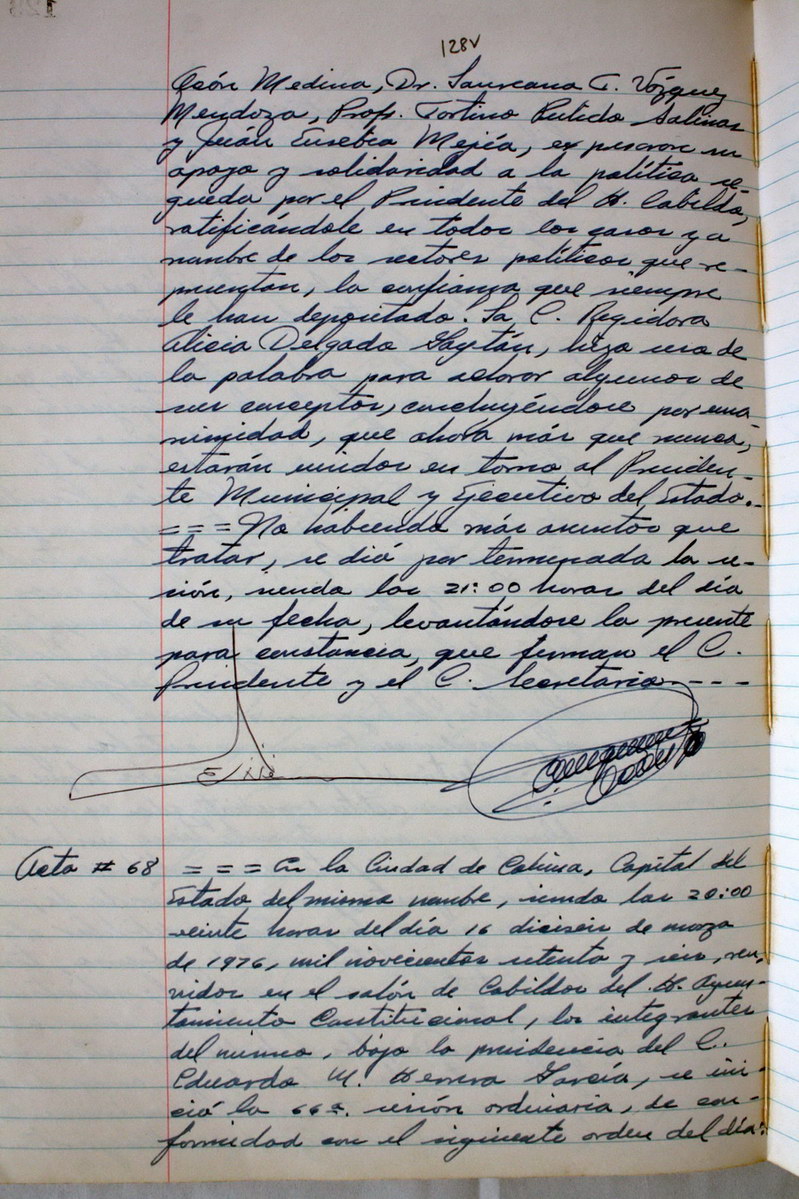 128v
Osón Medina, Dr. Laureano T. Vázquez
Mendoza, Profr. Fortino Pulido Salinas
y Juán Eusebio Mejía, expresaron su
apoyo y solidaridad a la política se-
guida por el Presidente del H. Cabildo,
ratificándole en todos los casos y a
nombre de los sectores políticos que re-
presentan, la confianza que siempre
le han depositado. La C. Regidora
Alicia Delgado Gaytán, hizo uso de
la palabra para algunos de
sus conceptos, concluyéndose por una-
nimidad, que ahora más que nunca,
estarán unidos en torno al Presiden-
te Municipal y Ejecutivo del Estado.-
=== No habiendo más asuntos que
tratar, se dió por terminada la se-
sión, siendo las 21:00 horas del día
de su fecha, levantándose la presente
para constancia, que firman el C.
Presidente y el C. Secretario.----
Acta # 68 === En la Ciudad de Colima, Capital del
Estado del mismo nombre, siendo las 20:00
veinte horas del día 16 dieciseis de marzo
de 1976, mil novecientos setenta y seis, reu-
nidos en el salón de Cabildos del H. Ayun-
tamiento Constitucional, los integrantes
del mismo, bajo la presidencia del C.
Eduardo M. Herrera García, se ini-
ció la 66a. sesión ordinaria, de con-
formidad con el siguiente orden del día: